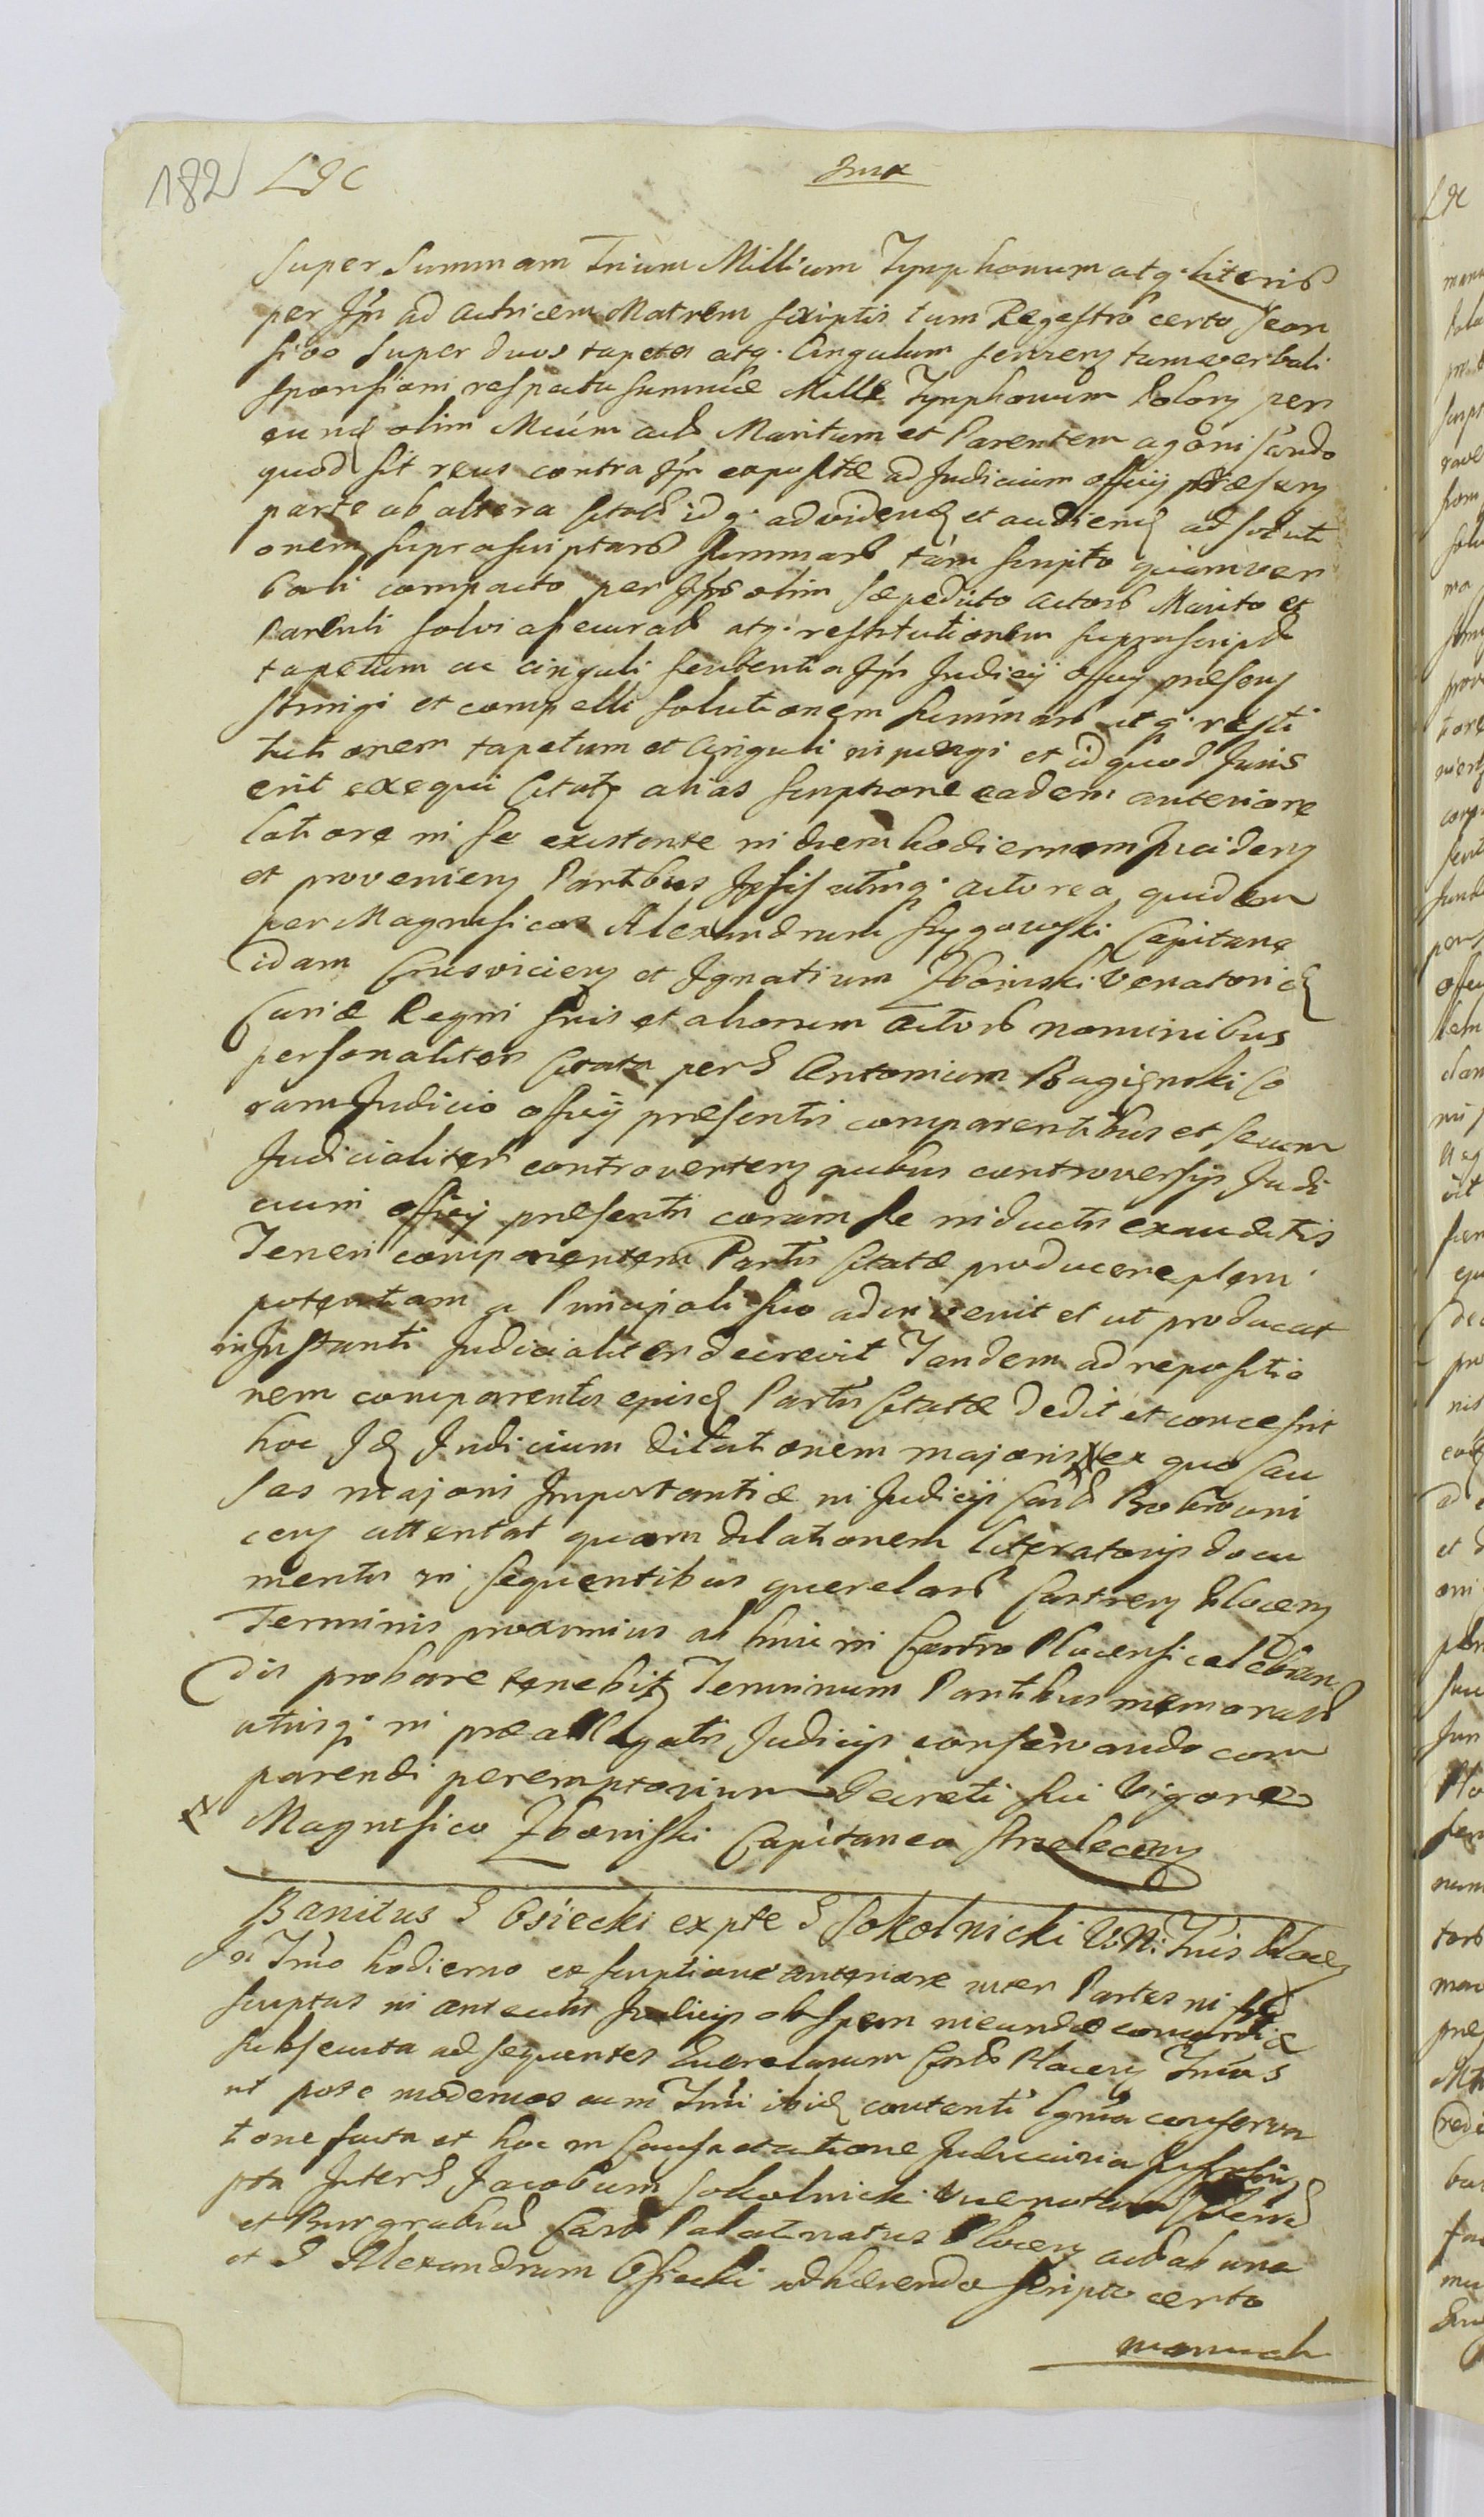 182
super summam Trium Millium Tymphonum atq. literis
per Ipm ad actricem Matrem scriptis tum Regestro certo seor
sivo super duos tapetes atq. Cingulum serviens tum verbali
sponsioni respectu summæ Mille Tymphonum Polon per
eund olim Mcum actor Maritum et Parentem agonisando
quod sit reus contra Ipm expositæ ad Judicium officij præsens
parte ab altera Citatos idq. ad videnđ et audienđ ad soluti
onem suprascriptars summars tam scripto quam ver
bali compacto per Ipos olim sæpedicto actors Marito et
Parenti solvi assecurats atq. restitutionem suprascripts
tapetum ac cinguli sententia Ipr Judicij officij præsens
stringi et compelli solutionem summars atq. resti
tutionem tapetum et Cinguli injungi et id quod Juris
erit exequi Citats alias scriptione eadem anteriore
latiore in se existente in diem hodiernam Incidens
et proveniens Partibus Ipsis utrinq. actorea quidem
per Magnificos Alexandrum Rygowski Capitane
idam Crusviciens et Ignatium Zboinski Venatorid
Curiæ Regni suis et aliorum actors nominibus
personaliter Citata per G Antonium Bagienski co
ram Judicio officij præsentis comparentibus et secum
Judicialiter controvertens quibus controversijs Judi
cium officij præsentis coram se inductis exauditis
Teneri comparentem Partis Citatæ producere pleni
potentiam a Principali suo adinvenit et ut producat
in Instanti Judicialiter decrevit Tandem ad repositio
nem comparentis ejusd Partis Citatæ dedit et concessit
hoc Id Judicium dilationem majoris ex quo Cau
sas majoris Importantiæ in Judicijs Castr Bobrowni
cens attentat quam dilationem literatorijs docu
mentis in sequentibus querelars Castrens Plocens
Terminis proximius ab hinc in Castro Plocensi celebran
dis probare tenebit Terminum Partibus memorats
utrisq. in præallegatis Judicijs conservando com
parendi peremptorium Decreti sui Vigore
Magnifico Zboinski Capitaneo Strzelecens
Banitus G Osiecki ex pte G Sokolnicki V. N. Tris Ploc
In Tmo hodierno ex scriptione anteriore inter Partes in
scriptus in antecis Judicijs ob spem ineundæ concordiæ
subsecuta ad sequentes Querelarum Castr Plocens Tmos
ut pote modernos cum Tmi ibid contenti conserva
tione facta et hoc in Causa et actione Judiciaria
pta Inter G Jacobum Sokolnicki
et Burgrabid Castr Palatinatus Plocens actor ab una
et G Alexandrum Osiecki adhærendo scripto certo
manuali